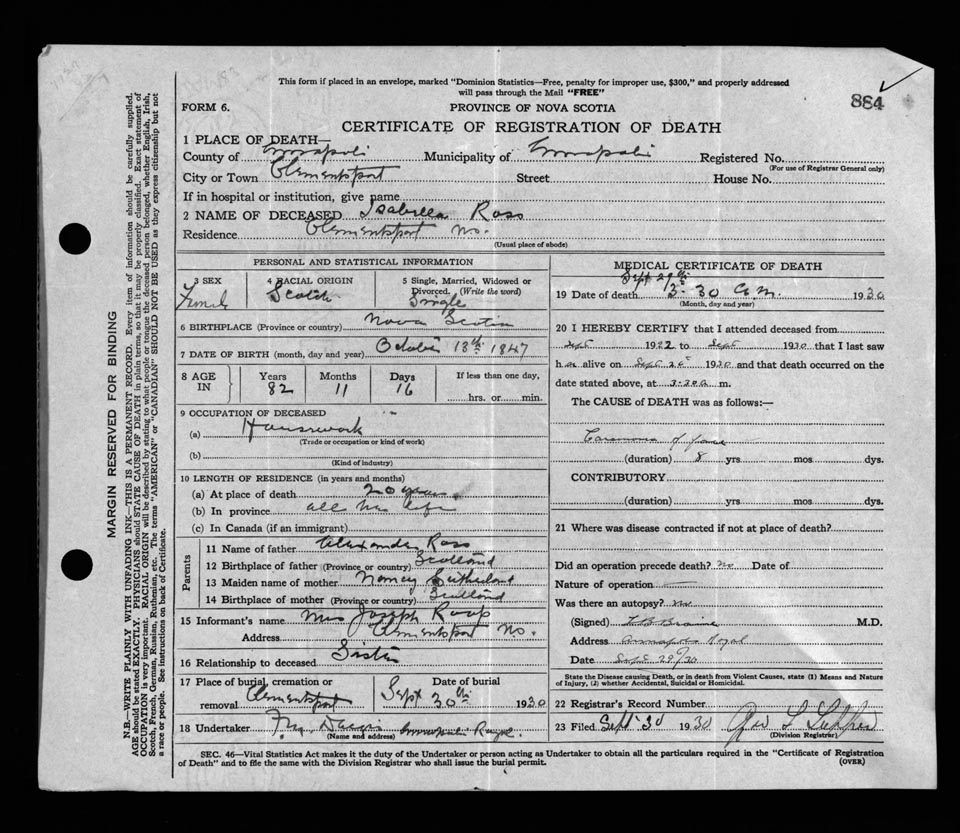 This form if placed in an envelope, marked "Dominion Statistics—Free, penalty for improper use, $300," and properly addressed
will pass through the Mail "FREE"
884
FORM 6.
PROVINCE OF NOVA SCOTIA
CERTIFICATE OF REGISTRATION OF DEATH
1 PLACE OF DEATH—
County of Annapolis Municipality of Annapolis Registered No.
(For use of Registrar General only)
City or Town Clementsport Street House No.
If in hospital or institution, give name
2 NAME OF DECEASED Isabella Ross
Residence Clementsport N.S.
(Usual place of abode)
PERSONAL AND STATISTICAL INFORMATION
3 SEX 4 RACIAL ORIGIN 5 Single, Married, Widowed or
Divorced. (Write the word)
Female Scotch Single
6 BIRTHPLACE (Province or country) Nova Scotia
7 DATE OF BIRTH (month, day and year) October 13th 1847
8 AGE IN Years Months Days If less than one day,
82 11 16 hrs. or min.
9 OCCUPATION OF DECEASED
(a) Housework
(Trade or occupation or kind of work)
(b)
(Kind of industry)
10 LENGTH OF RESIDENCE (in years and months)
(a) At place of death 20 years
(b) In province all her life
(c) In Canada (if an immigrant)
Parents
11 Name of father Alexander Ross
12 Birthplace of father (Province or country) Scotland
13 Maiden name of mother Nancy Sutherland
14 Birthplace of mother (Province or country) Scotland
15 Informant's name Mrs Joseph Roop
Address Clementsport N.S.
16 Relationship to deceased Sister
17 Place of burial, cremation or Date of burial
removal Clementsport Sept 30th 1930
18 Undertaker Annapolis Royal
(Name and address)
MEDICAL CERTIFICATE OF DEATH
Sept 29th
19 Date of death 3-30 a.m. 1930
(Month, day and year)
20 I HEREBY CERTIFY that I attended deceased from
Sept 1922 to Sept 1930 that I last saw
h er alive on Sept 26 1930 and that death occurred on the
date stated above, at 3-30 a m.
The CAUSE of DEATH was as follows:—
Carcinoma of face
(duration) 8 yrs mos dys.
CONTRIBUTORY
(duration) yrs mos dys.
21 Where was disease contracted if not at place of death?
Did an operation precede death? no Date of
Nature of operation
Was there an autopsy? no
(Signed) L B Braine M.D.
Address Annapolis Royal
Date Sept 29/30
State the Disease causing Death, or in death from Violent Causes, state (1) Means and Nature
of Injury, (2) whether Accidental, Suicidal or Homicidal.
22 Registrar's Record Number
23 Filed Sept 30 1930 Geo L Tupper
(Division Registrar)
SEC. 46—Vital Statistics Act makes it the duty of the Undertaker or person acting as Undertaker to obtain all the particulars required in the "Certificate of Registration
of Death" and to file the same with the Division Registrar who shall issue the burial permit.
(OVER)
MARGIN RESERVED FOR BINDING
N.B.—WRITE PLAINLY WITH UNFADING INK—THIS IS A PERMANENT RECORD. Every item of information should be carefully supplied.
AGE should be stated EXACTLY. PHYSICIANS should STATE CAUSE OF DEATH in plain terms, so that it may be properly classified. Exact statement of
OCCUPATION is very important. RACIAL ORIGIN will be described by stating to what people or tongue the deceased person belonged, whether English, Irish,
Scotch, French, German, Russian, Ruthenian, etc. The terms "AMERICAN" or "CANADIAN" SHOULD NOT BE USED as they express citizenship but not
a race or people. See instructions on back of Certificate.